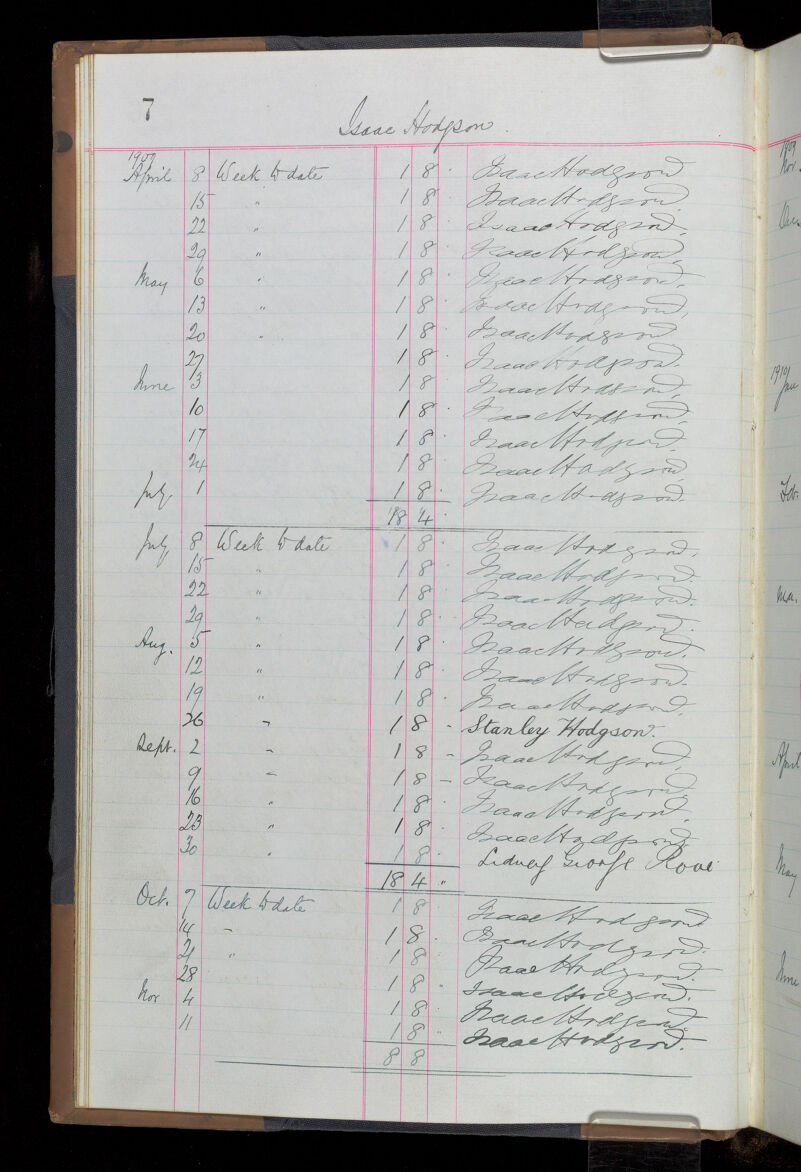 7
Isaac Hodgson
1909
April 8 Week to date 1 8 . Isaac Hodgson
15 " 1 8 . Isaac Hodgson
22 " 1 8 . Isaac Hodgson.
29 " 1 8 . Isaac Hodgson.
May 6 " 1 8 . Isaac Hodgson.
13 " 1 8 . Isaac Hodgson.
20 " 1 8 . Isaac Hodgson
27 1 8 . Isaac Hodgson.
June 3 1 8 . Isaac Hodgson.
10 1 8 . Isaac Hodgson.
17 1 8 . Isaac Hodgson.
24 1 8 . Isaac Hodgson
July 1 1 8 . Isaac Hodgson.
18 4 .
July 8 Week to date 1 8 . Isaac Hodgson.
15 " 1 8 . Isaac Hodgson.
22 " 1 8 . Isaac Hodgson.
29 " 1 8 . Isaac Hodgson.
Aug. 5 " 1 8 . Isaac Hodgson.
12 " 1 8 . Isaac Hodgson.
19 " 1 8 . Isaac Hodgson.
26 " 1 8 - Stanley Hodgson.
Sept. 2 " 1 8 - Isaac Hodgson.
9 " 1 8 - Isaac Hodgson.
16 " 1 8 . Isaac Hodgson.
23 " 1 8 . Isaac Hodgson.
30 " 1 8 . Sidney George Rowe
18 4 "
Oct. 7 Week to date 1 8 Isaac Hodgson
14 " 1 8 . Isaac Hodgson.
21 " 1 8 Isaac Hodgson.
28 1 8 " Isaac Hodgson.
Nov 4 1 8 Isaac Hodgson.
11 1 8 " Isaac Hodgson.
8 8
1909
Nov.
1910
Feb.
Mar.
April
May
June